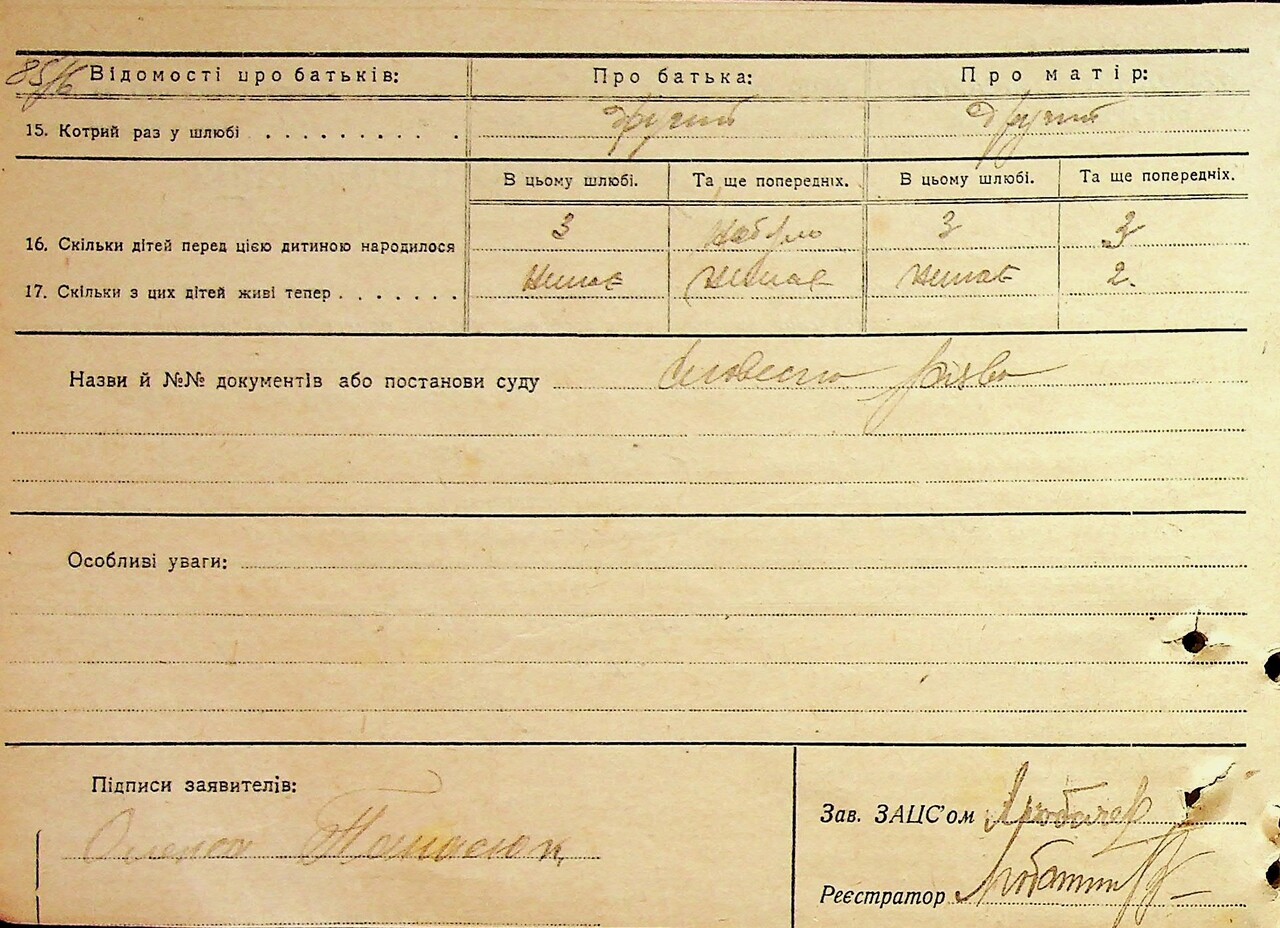 85/6 Відомості про батьків: Про батька: Про матір:
15. Котрий раз у шлюбі . . . . . . . . . . другий другий
В цьому шлюбі. Та ще попередніх. В цьому шлюбі. Та ще попередніх.
16. Скільки дітей перед цією дитиною народилося 3 3 3
17. Скільки з цих дітей живі тепер . . . . . . . немає немає немає 2.
Назви й №№ документів або постанови суду словесно
Особливі уваги:
Підписи заявителів:
Зав. ЗАЦС'ом
Реєстратор